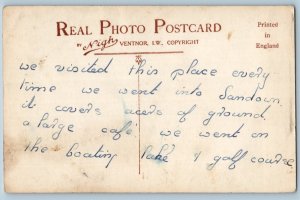 REAL PHOTO POSTCARD
BY Nigh VENTNOR, I.W., COPYRIGHT
Printed
in
England
we visited this place every
time we went into Sandown
it covers acers of ground
a large café we went on
the boating lake & golf course